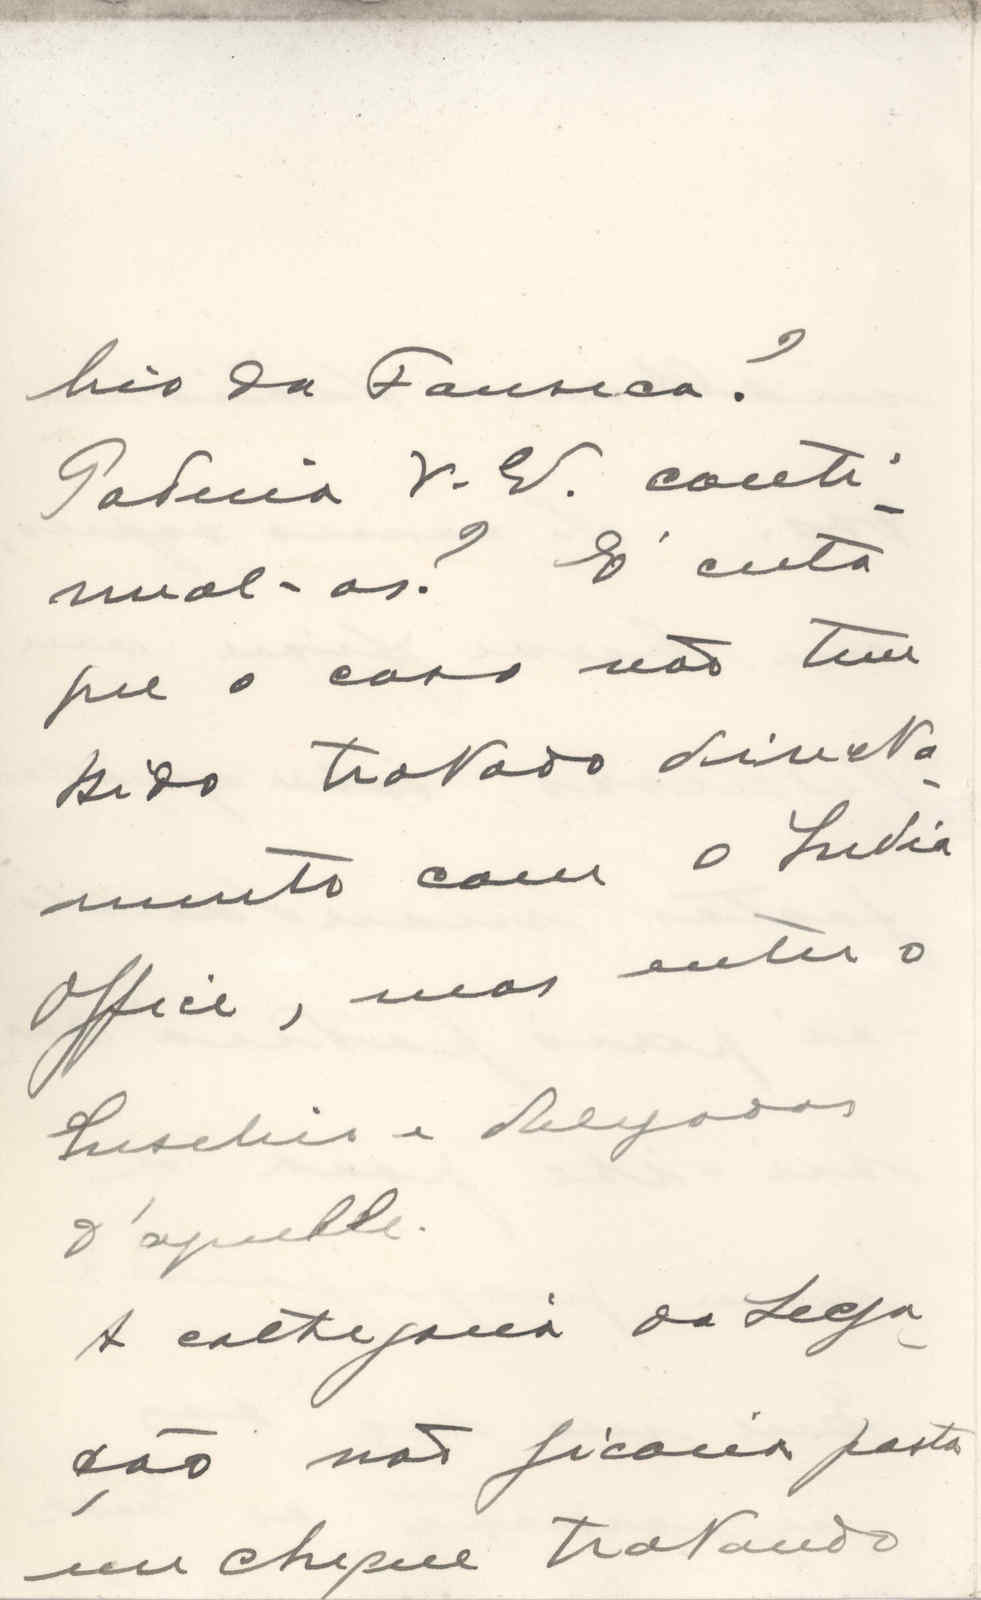 bio da Fonseca?
Poderia V. Ex. conti-
nual-as? É certo
que o caso não tem
sido tratado directa-
mente com o India
Office, mas entre o
Eusebio e delegados
d'aquelle.
A cathegoria da Lega-
ção não ficaria posta
em cheque tratando